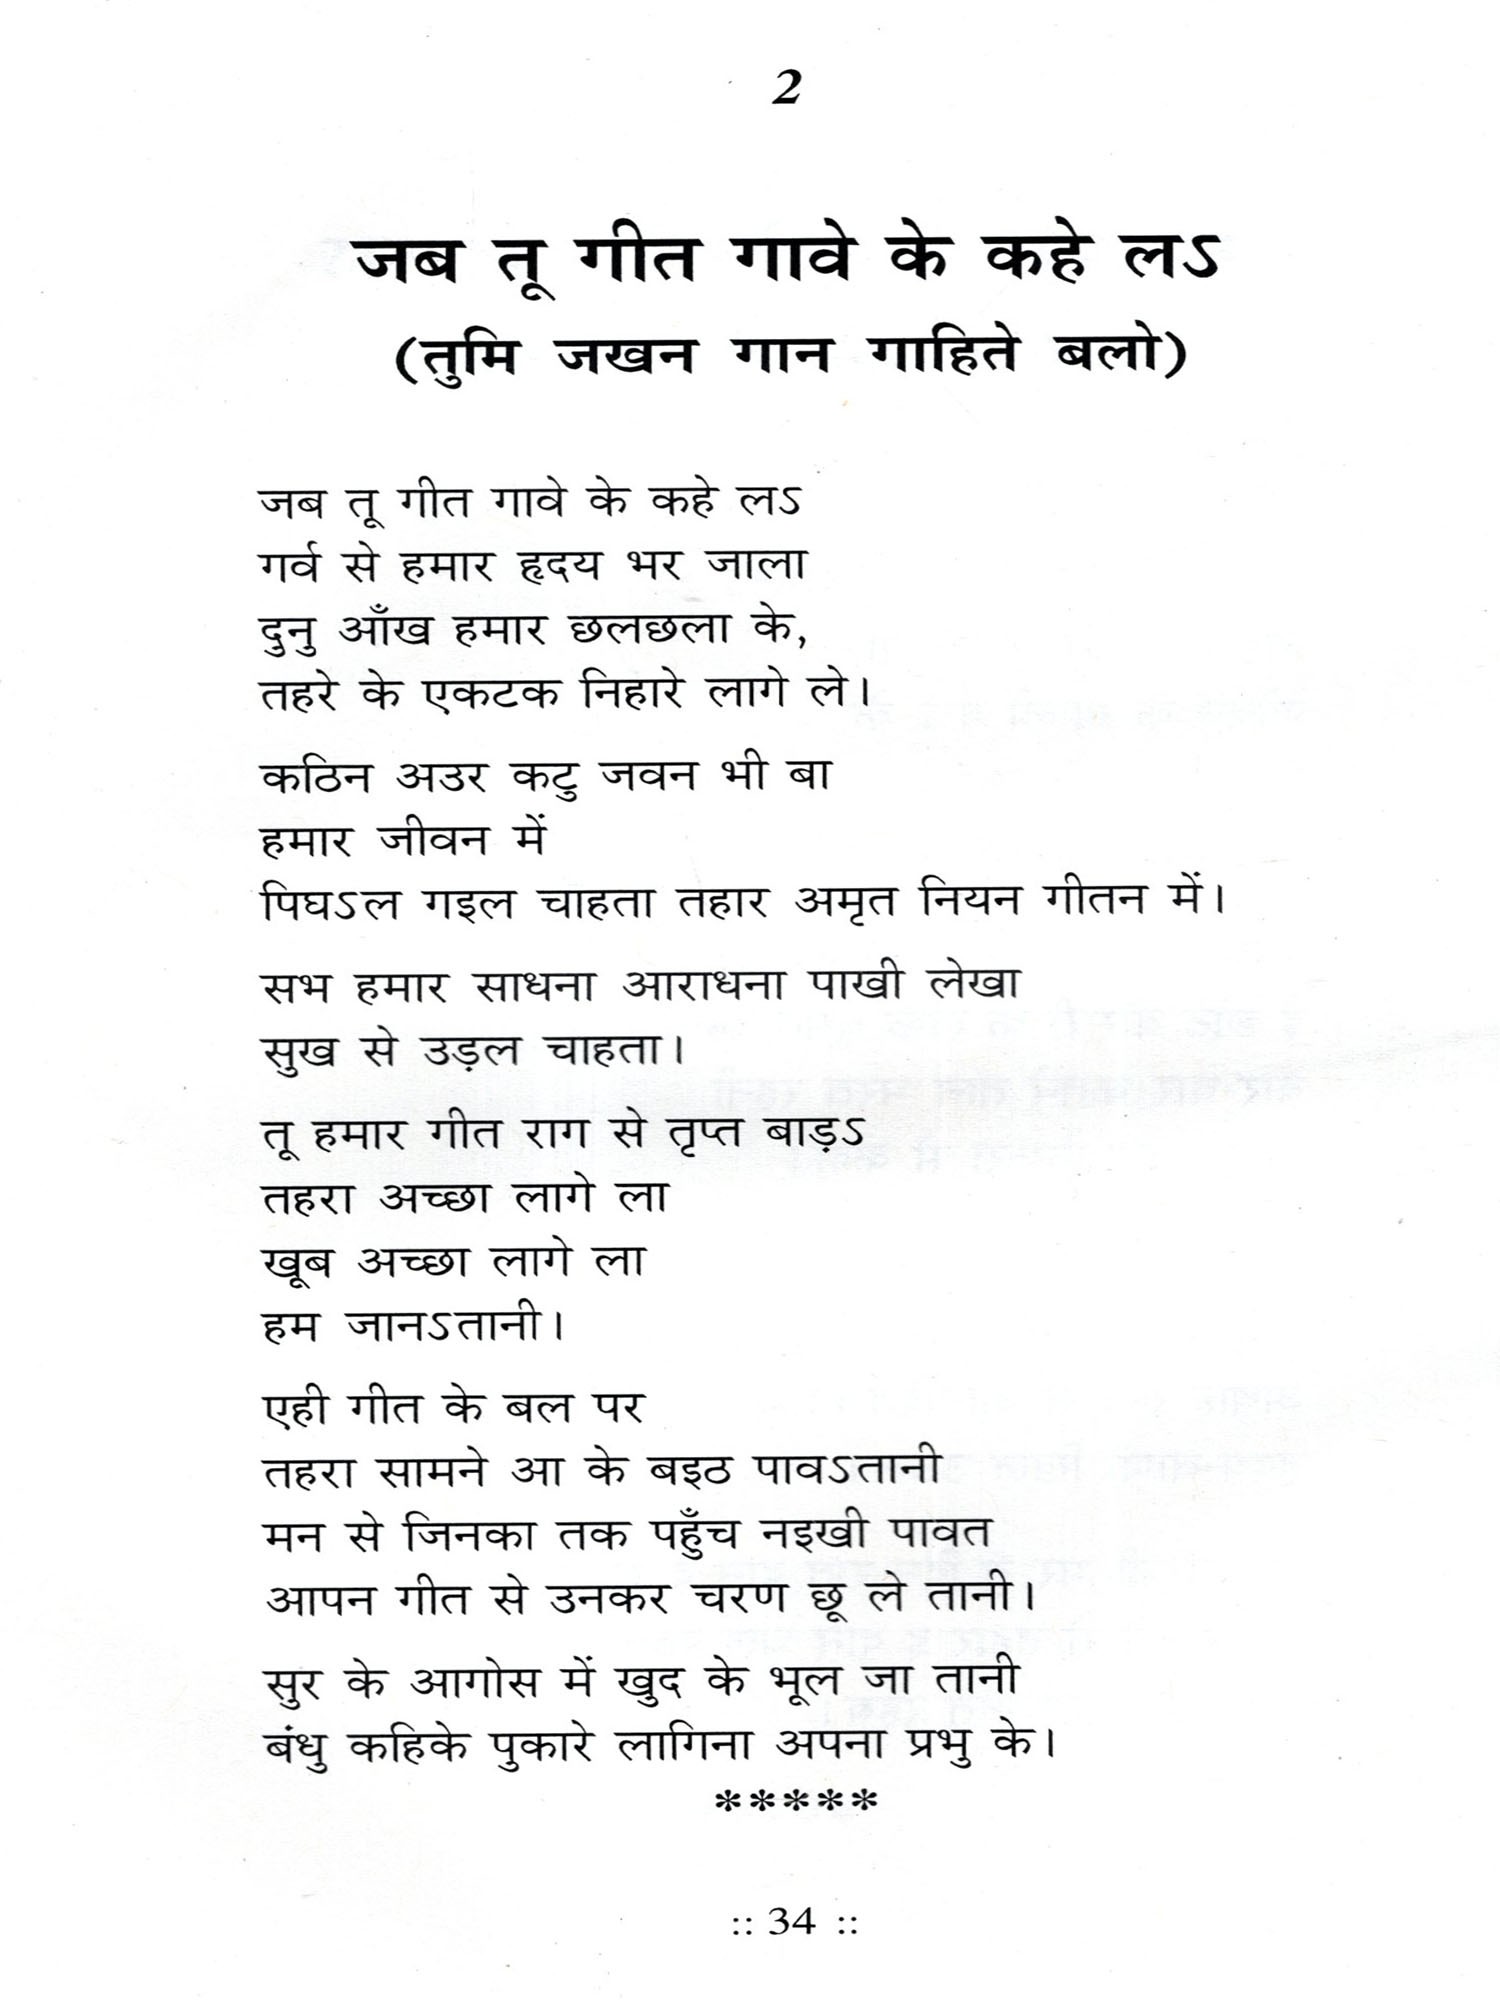 2
जब तू गीत गावे के कहे लऽ
(तुमि जखन गान गाहिते बलो)
जब तू गीत गावे के कहे लऽ
गर्व से हमार हृदय भर जाला
दुनु आँख हमार छलछला के,
तहरे के एकटक निहारे लागे ले।
कठिन अउर कटु जवन भी बा
हमार जीवन में
पिघऽल गइल चाहता तहार अमृत नियन गीतन में।
सभ हमार साधना आराधना पाखी लेखा
सुख से उड़ल चाहता।
तू हमार गीत राग से तृप्त बाड़ऽ
तहरा अच्छा लागे ला
खूब अच्छा लागे ला
हम जानऽतानी।
एही गीत के बल पर
तहरा सामने आ के बइठ पावऽतानी
मन से जिनका तक पहुँच नइखी पावत
आपन गीत से उनकर चरण छू ले तानी।
सुर के आगोस में खुद के भूल जा तानी
बंधु कहिके पुकारे लागिना अपना प्रभु के।
*****
:: 34 ::